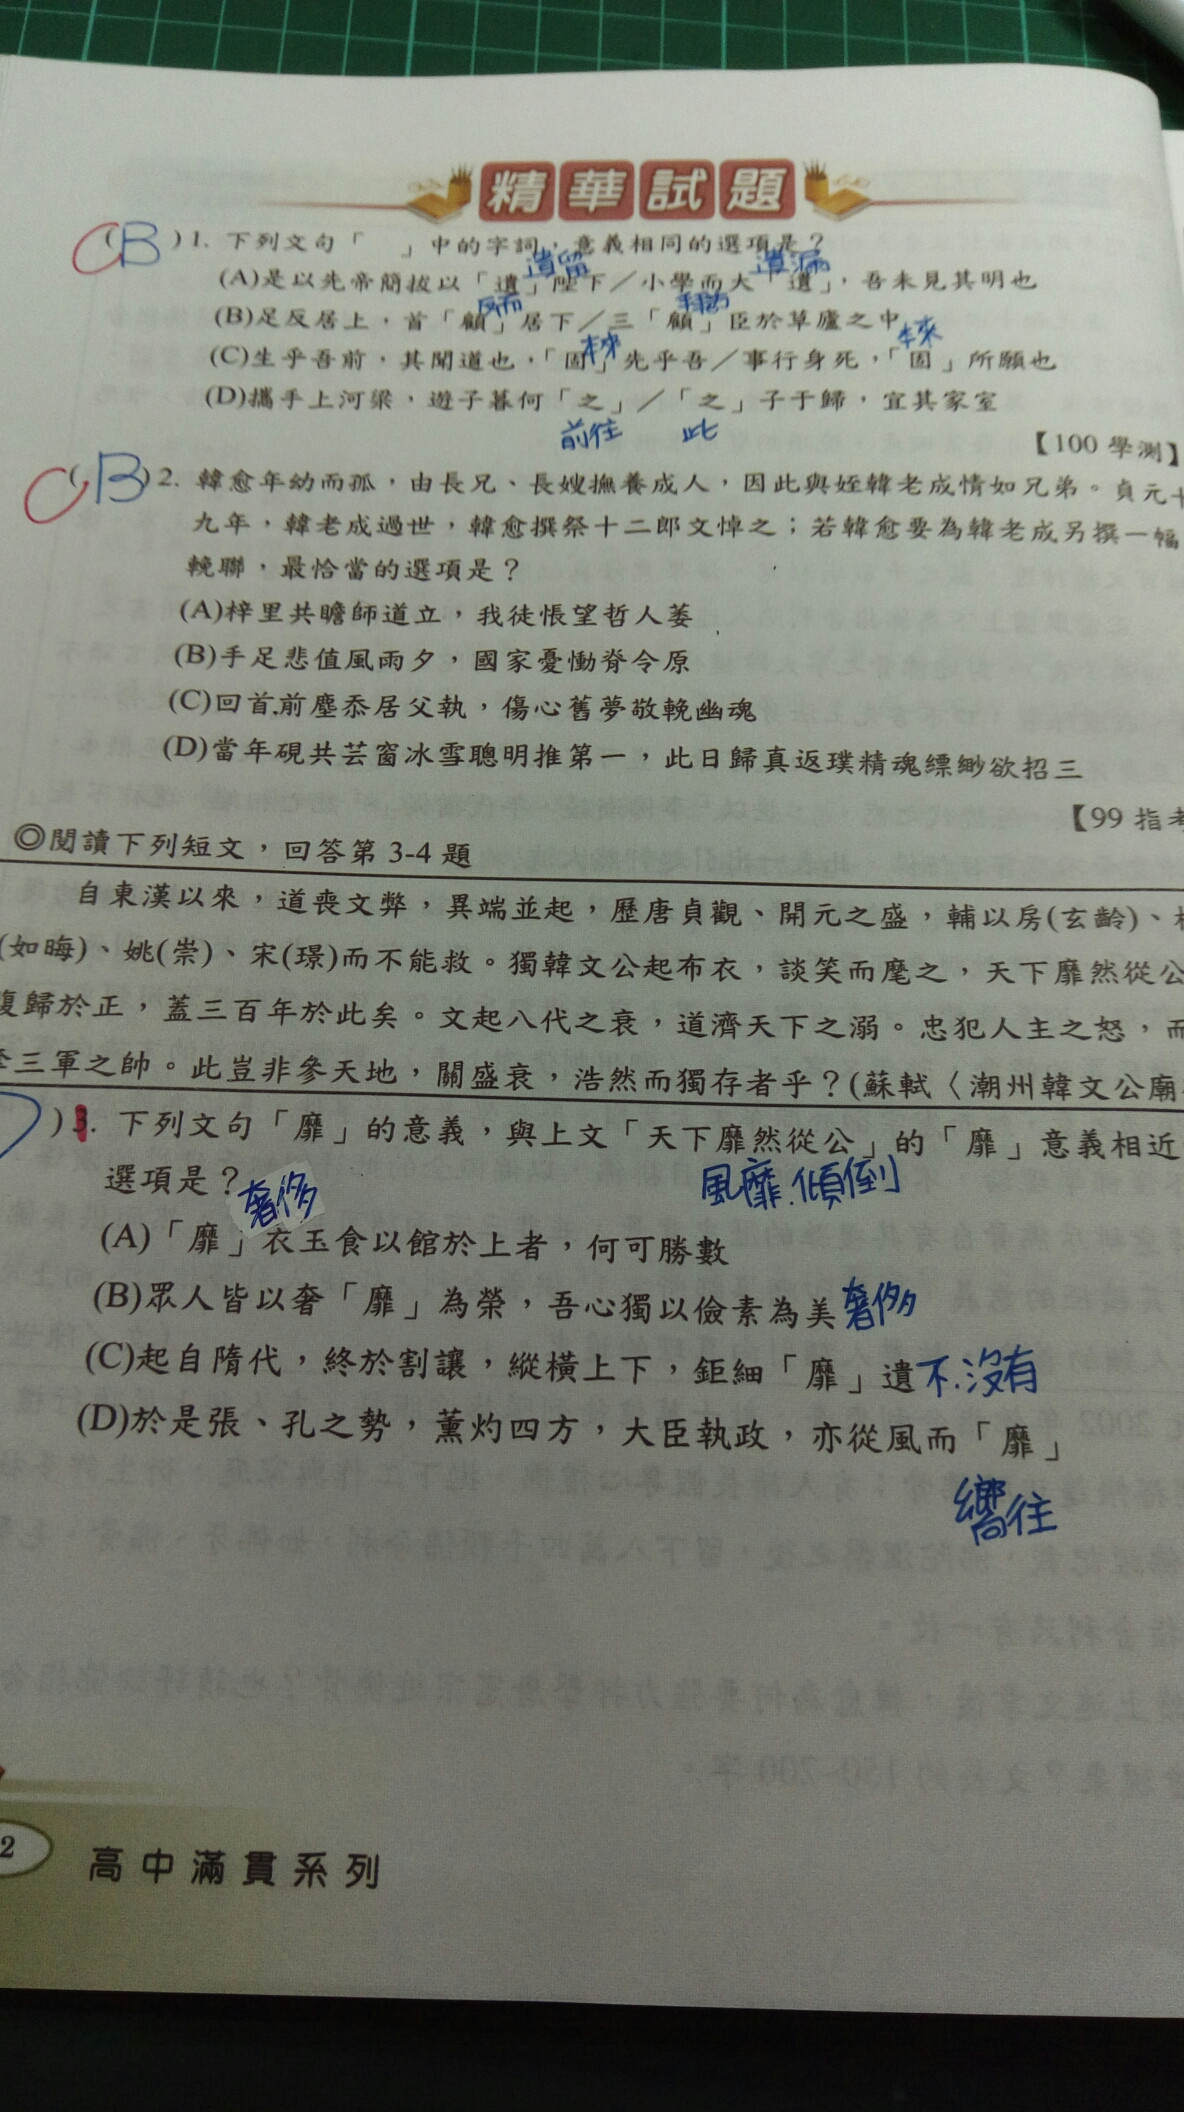 精華試題
C(B)1. 下列文句「　」中的字詞，意義相同的選項是？
遺留 遺漏
(A)是以先帝簡拔以「遺」陛下／小學而大「遺」，吾未見其明也
反而 拜訪
(B)足反居上，首「顧」居下／三「顧」臣於草廬之中
本來 本來
(C)生乎吾前，其聞道也，「固」先乎吾／事行身死，「固」所願也
(D)攜手上河梁，遊子暮何「之」／「之」子于歸，宜其家室
前往 此
【100 學測】
C(B)2. 韓愈年幼而孤，由長兄、長嫂撫養成人，因此與姪韓老成情如兄弟。貞元十
九年，韓老成過世，韓愈撰祭十二郎文悼之；若韓愈要為韓老成另撰一幅
輓聯，最恰當的選項是？
(A)梓里共瞻師道立，我徒悵望哲人萎
(B)手足悲值風雨夕，國家憂慟脊令原
(C)回首前塵忝居父執，傷心舊夢敬輓幽魂
(D)當年硯共芸窗冰雪聰明推第一，此日歸真返璞精魂縹緲欲招三
【99 指考
◎閱讀下列短文，回答第 3-4 題
自東漢以來，道喪文弊，異端並起，歷唐貞觀、開元之盛，輔以房(玄齡)、
(如晦)、姚(崇)、宋(璟)而不能救。獨韓文公起布衣，談笑而麾之，天下靡然從公
復歸於正，蓋三百年於此矣。文起八代之衰，道濟天下之溺。忠犯人主之怒，而
三軍之帥。此豈非參天地，關盛衰，浩然而獨存者乎？(蘇軾〈潮州韓文公廟
)3. 下列文句「靡」的意義，與上文「天下靡然從公」的「靡」意義相近
選項是？
風靡.傾倒
奢侈
(A)「靡」衣玉食以館於上者，何可勝數
(B)眾人皆以奢「靡」為榮，吾心獨以儉素為美 奢侈
(C)起自隋代，終於割讓，縱橫上下，鉅細「靡」遺 不.沒有
(D)於是張、孔之勢，薰灼四方，大臣執政，亦從風而「靡」
嚮往
2
高中滿貫系列